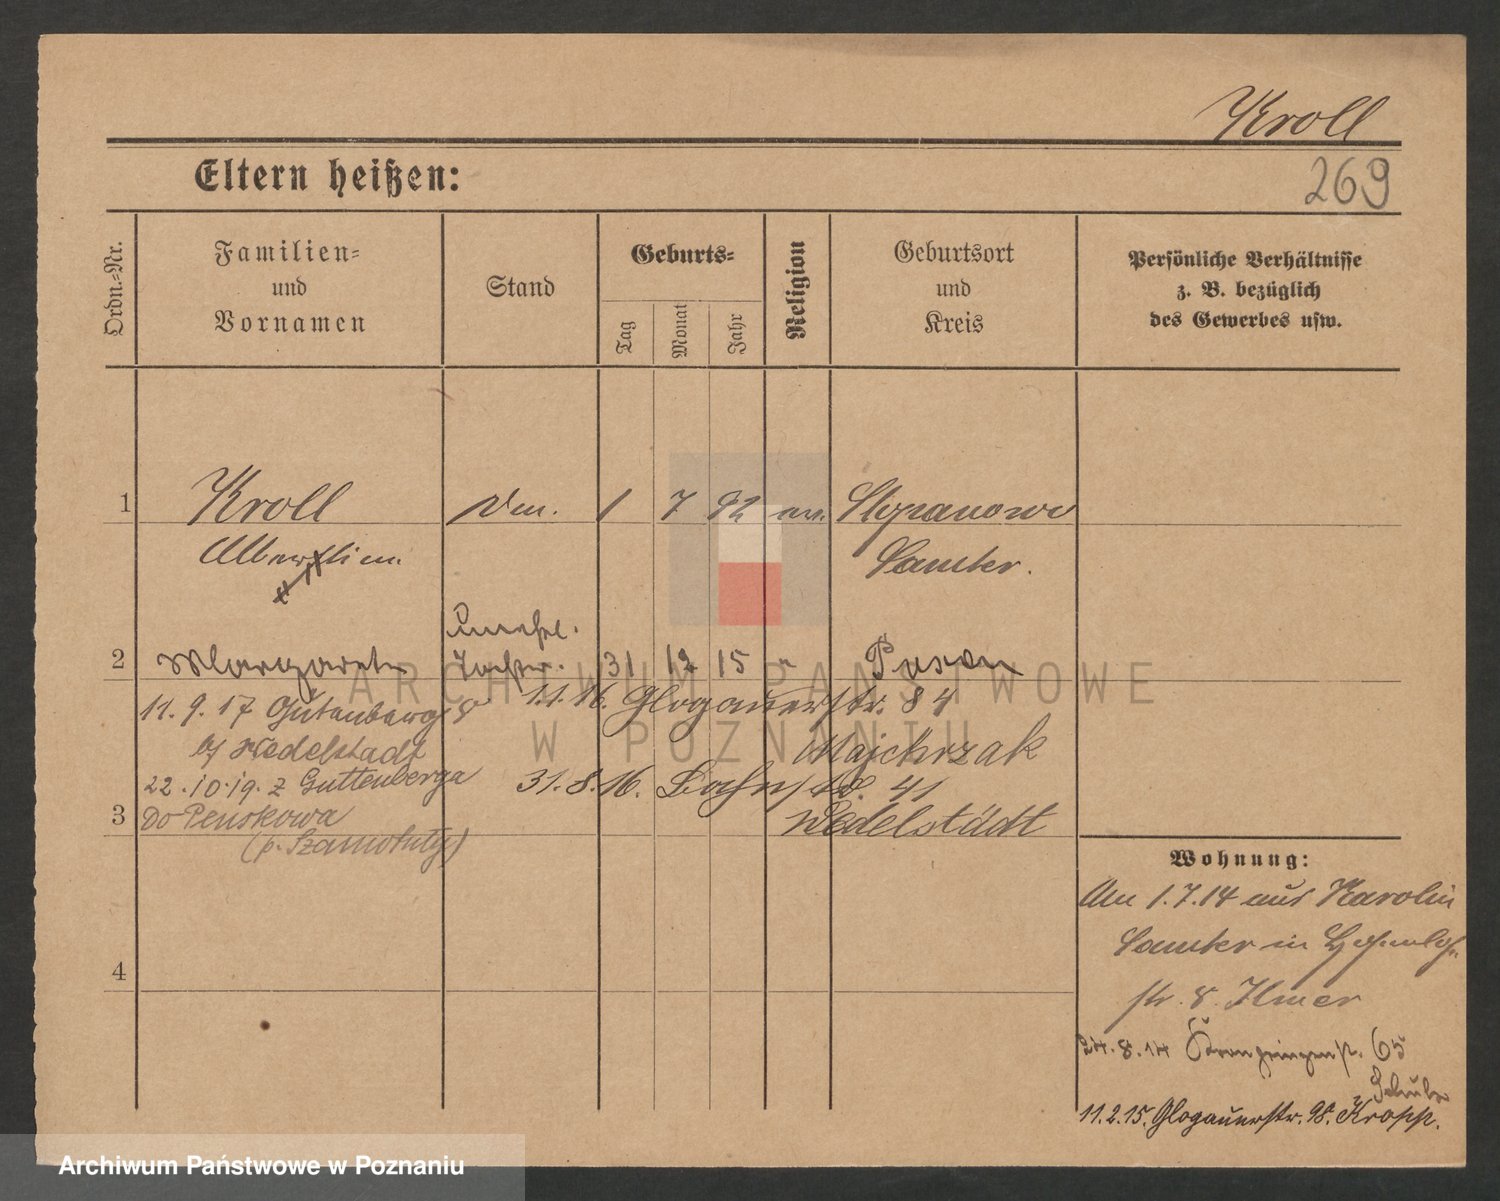 Kroll
Eltern heißen:
269
Ordn.-Nr.
Familien-
und
Vornamen
Stand
Geburts-
Tag
Monat
Jahr
Religion
Geburtsort
und
Kreis
Persönliche Verhältnisse
z. B. bezüglich
des Gewerbes usw.
1 Kroll 1 7 92 Stopanowo
Samter.
unehl.
2 Margarete Tochter. 31 12 15 " Posen
11.9.17 Gutenberg
b/ Wedelstädt
22.10.19. z Guttenberga
3 do Penskowa
(p. Szamotuły)
1.1.16. Glogauerstr. 84
Majchrzak
31.8.16. Bahnstr. 41
Wedelstädt
4
Wohnung:
Am 1.7.14 aus Karolin
Samter in
str. 8. Ilmer
24.8.14 Kronprinzenstr. 65
11.2.15. Glogauerstr. 98. Kropp.
ARCHIWUM PAŃSTWOWE
W POZNANIU
Archiwum Państwowe w Poznaniu